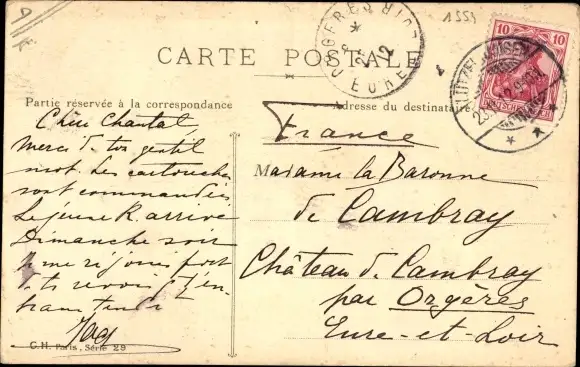 1553
CARTE POSTALE
ORGERES
EURE
LOIR
10 10
DEUTSCHES REICH
LÜTZELHAUSEN
Partie réservée à la correspondance
Adresse du destinataire
Chère Chantal,
Merci de ton gentil
mot. Les cartouches
sont commandées.
Le jeune R. arrive
Dimanche soir
me réjouis fort
te revoir & t'em-
brasse
France
Madame la Baronne
de Cambray
Château de Cambray
par Orgères
Eure-et-Loir
C.H. Paris, Série 29